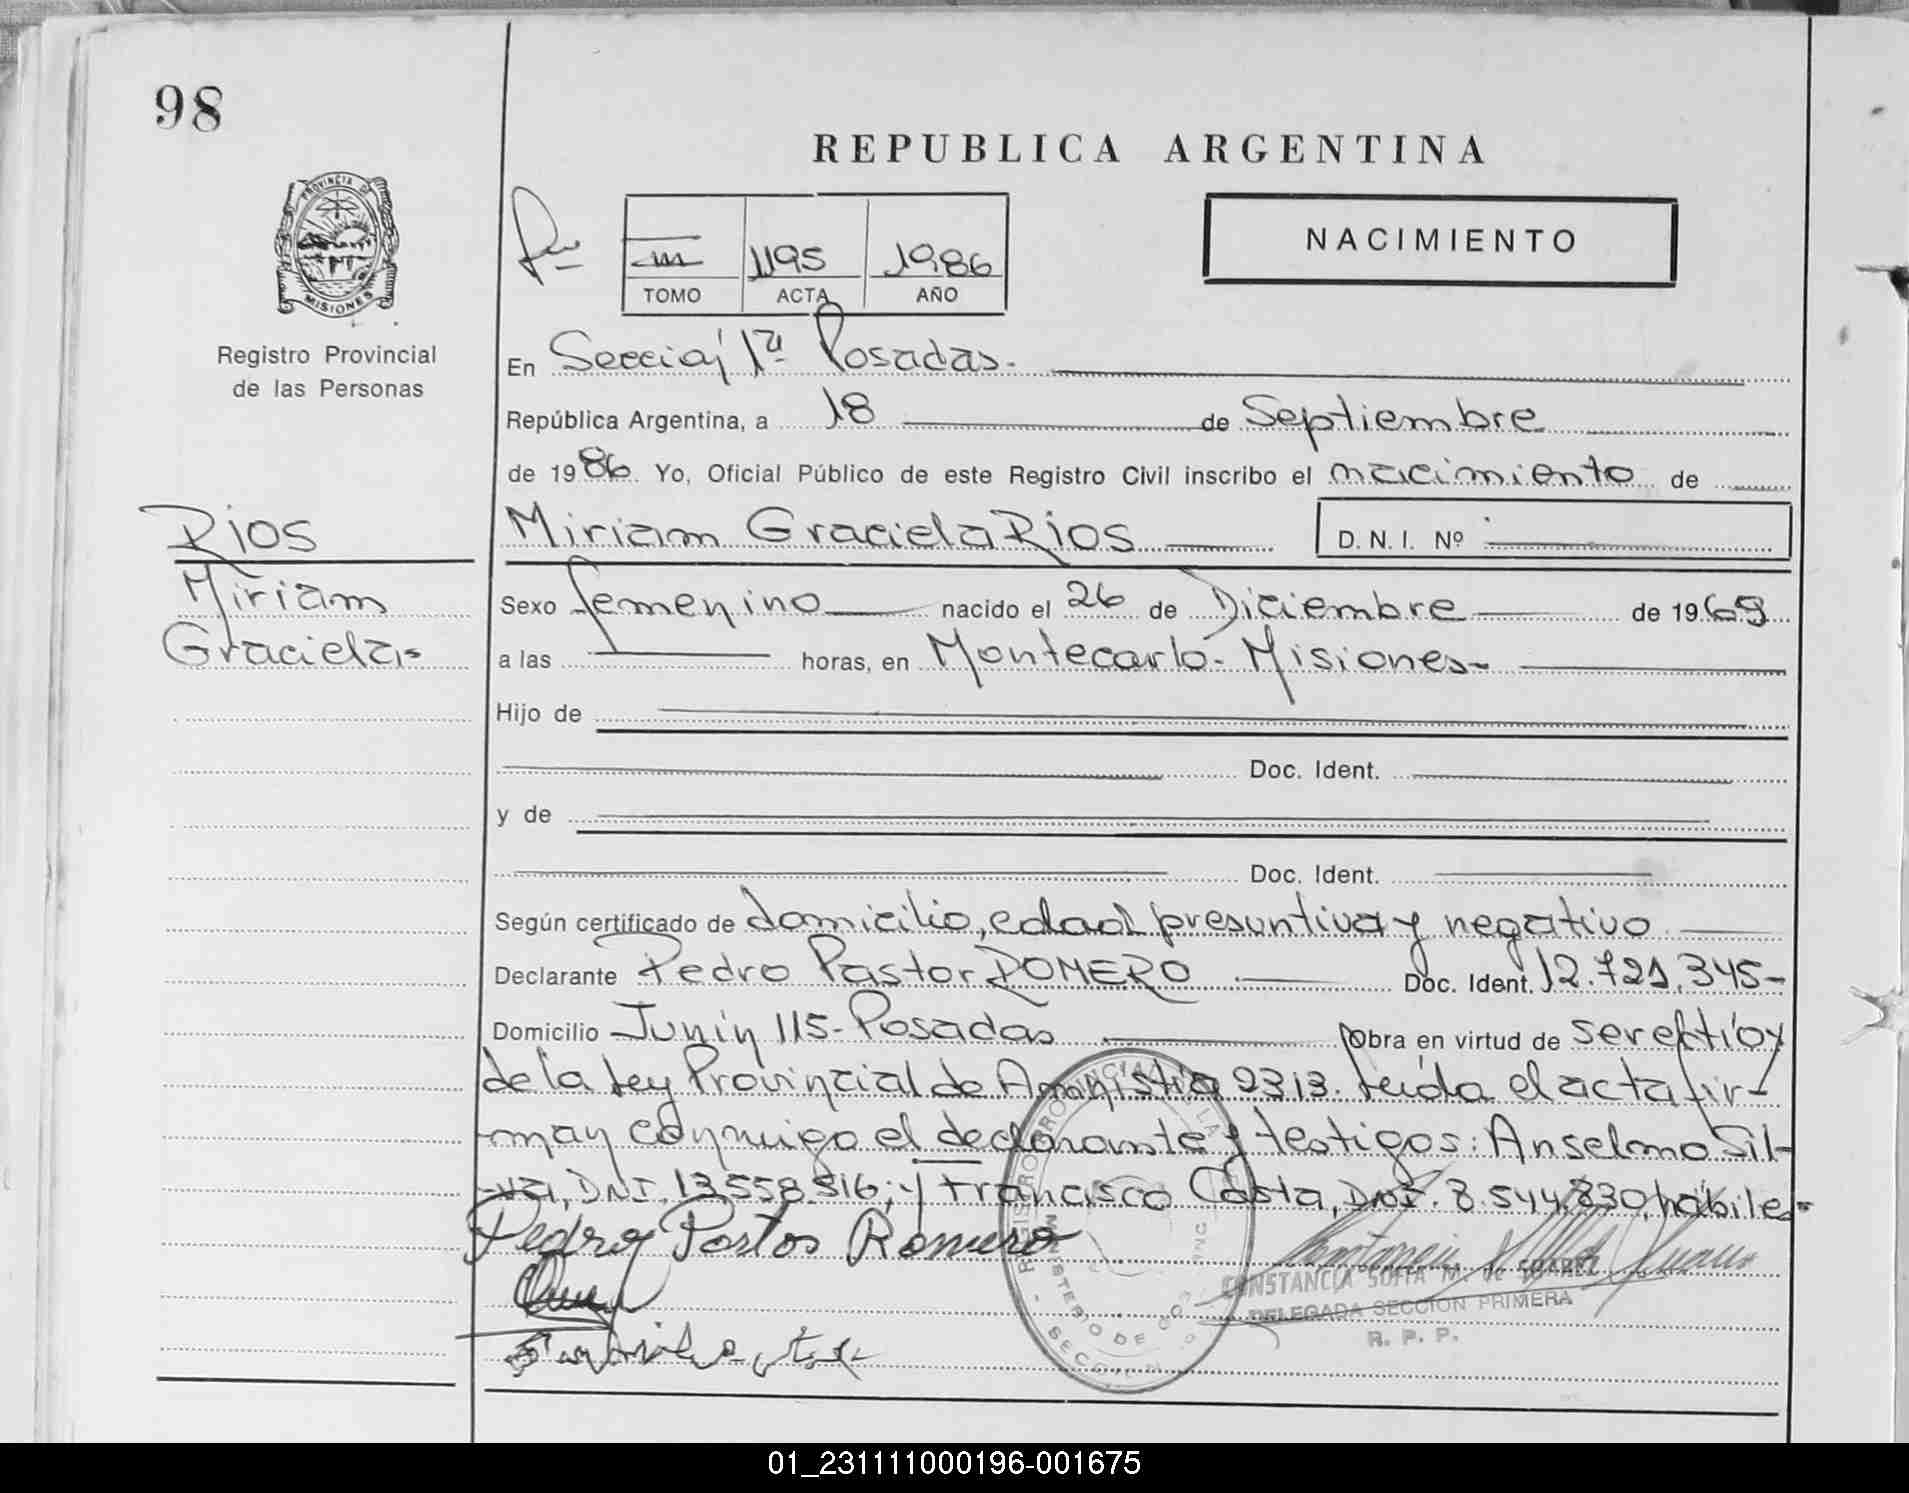 98
REPUBLICA ARGENTINA
PROVINCIA DE
MISIONES
Registro Provincial
de las Personas
III 1195 1986
TOMO ACTA AÑO
NACIMIENTO
En Sección 1ª Posadas.
República Argentina, a 18 de Septiembre
de 1986 Yo, Oficial Público de este Registro Civil inscribo el nacimiento de
Rios
Miriam Graciela Rios D.N.I. Nº
Miriam
Graciela
Sexo femenino nacido el 26 de Diciembre de 1969
a las horas, en Montecarlo - Misiones-
Hijo de
Doc. Ident.
y de
Doc. Ident.
Según certificado de domicilio, edad presuntiva y negativo
Declarante Pedro Pastor ROMERO Doc. Ident. 12.721.345-
Domicilio Junín 115- Posadas Obra en virtud de ser
de la Ley Provincial de Amnistía 2313. Leída el acta fir-
-man conmigo el declarante y testigos: Anselmo Sil-
-va, DNI. 13.558.816; y Francisco Costa, DNI. 8.544.830, hábiles-
Pedro Pastor Romero
CONSTANCIA SOFIA M. de SUAREZ
DELEGADA SECCION PRIMERA
R. P. P.
01_231111000196-001675